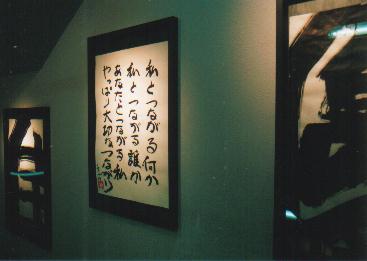 私とつながる何か
私とつながる誰か
あなたとつながる私
やっぱり大切なつながり